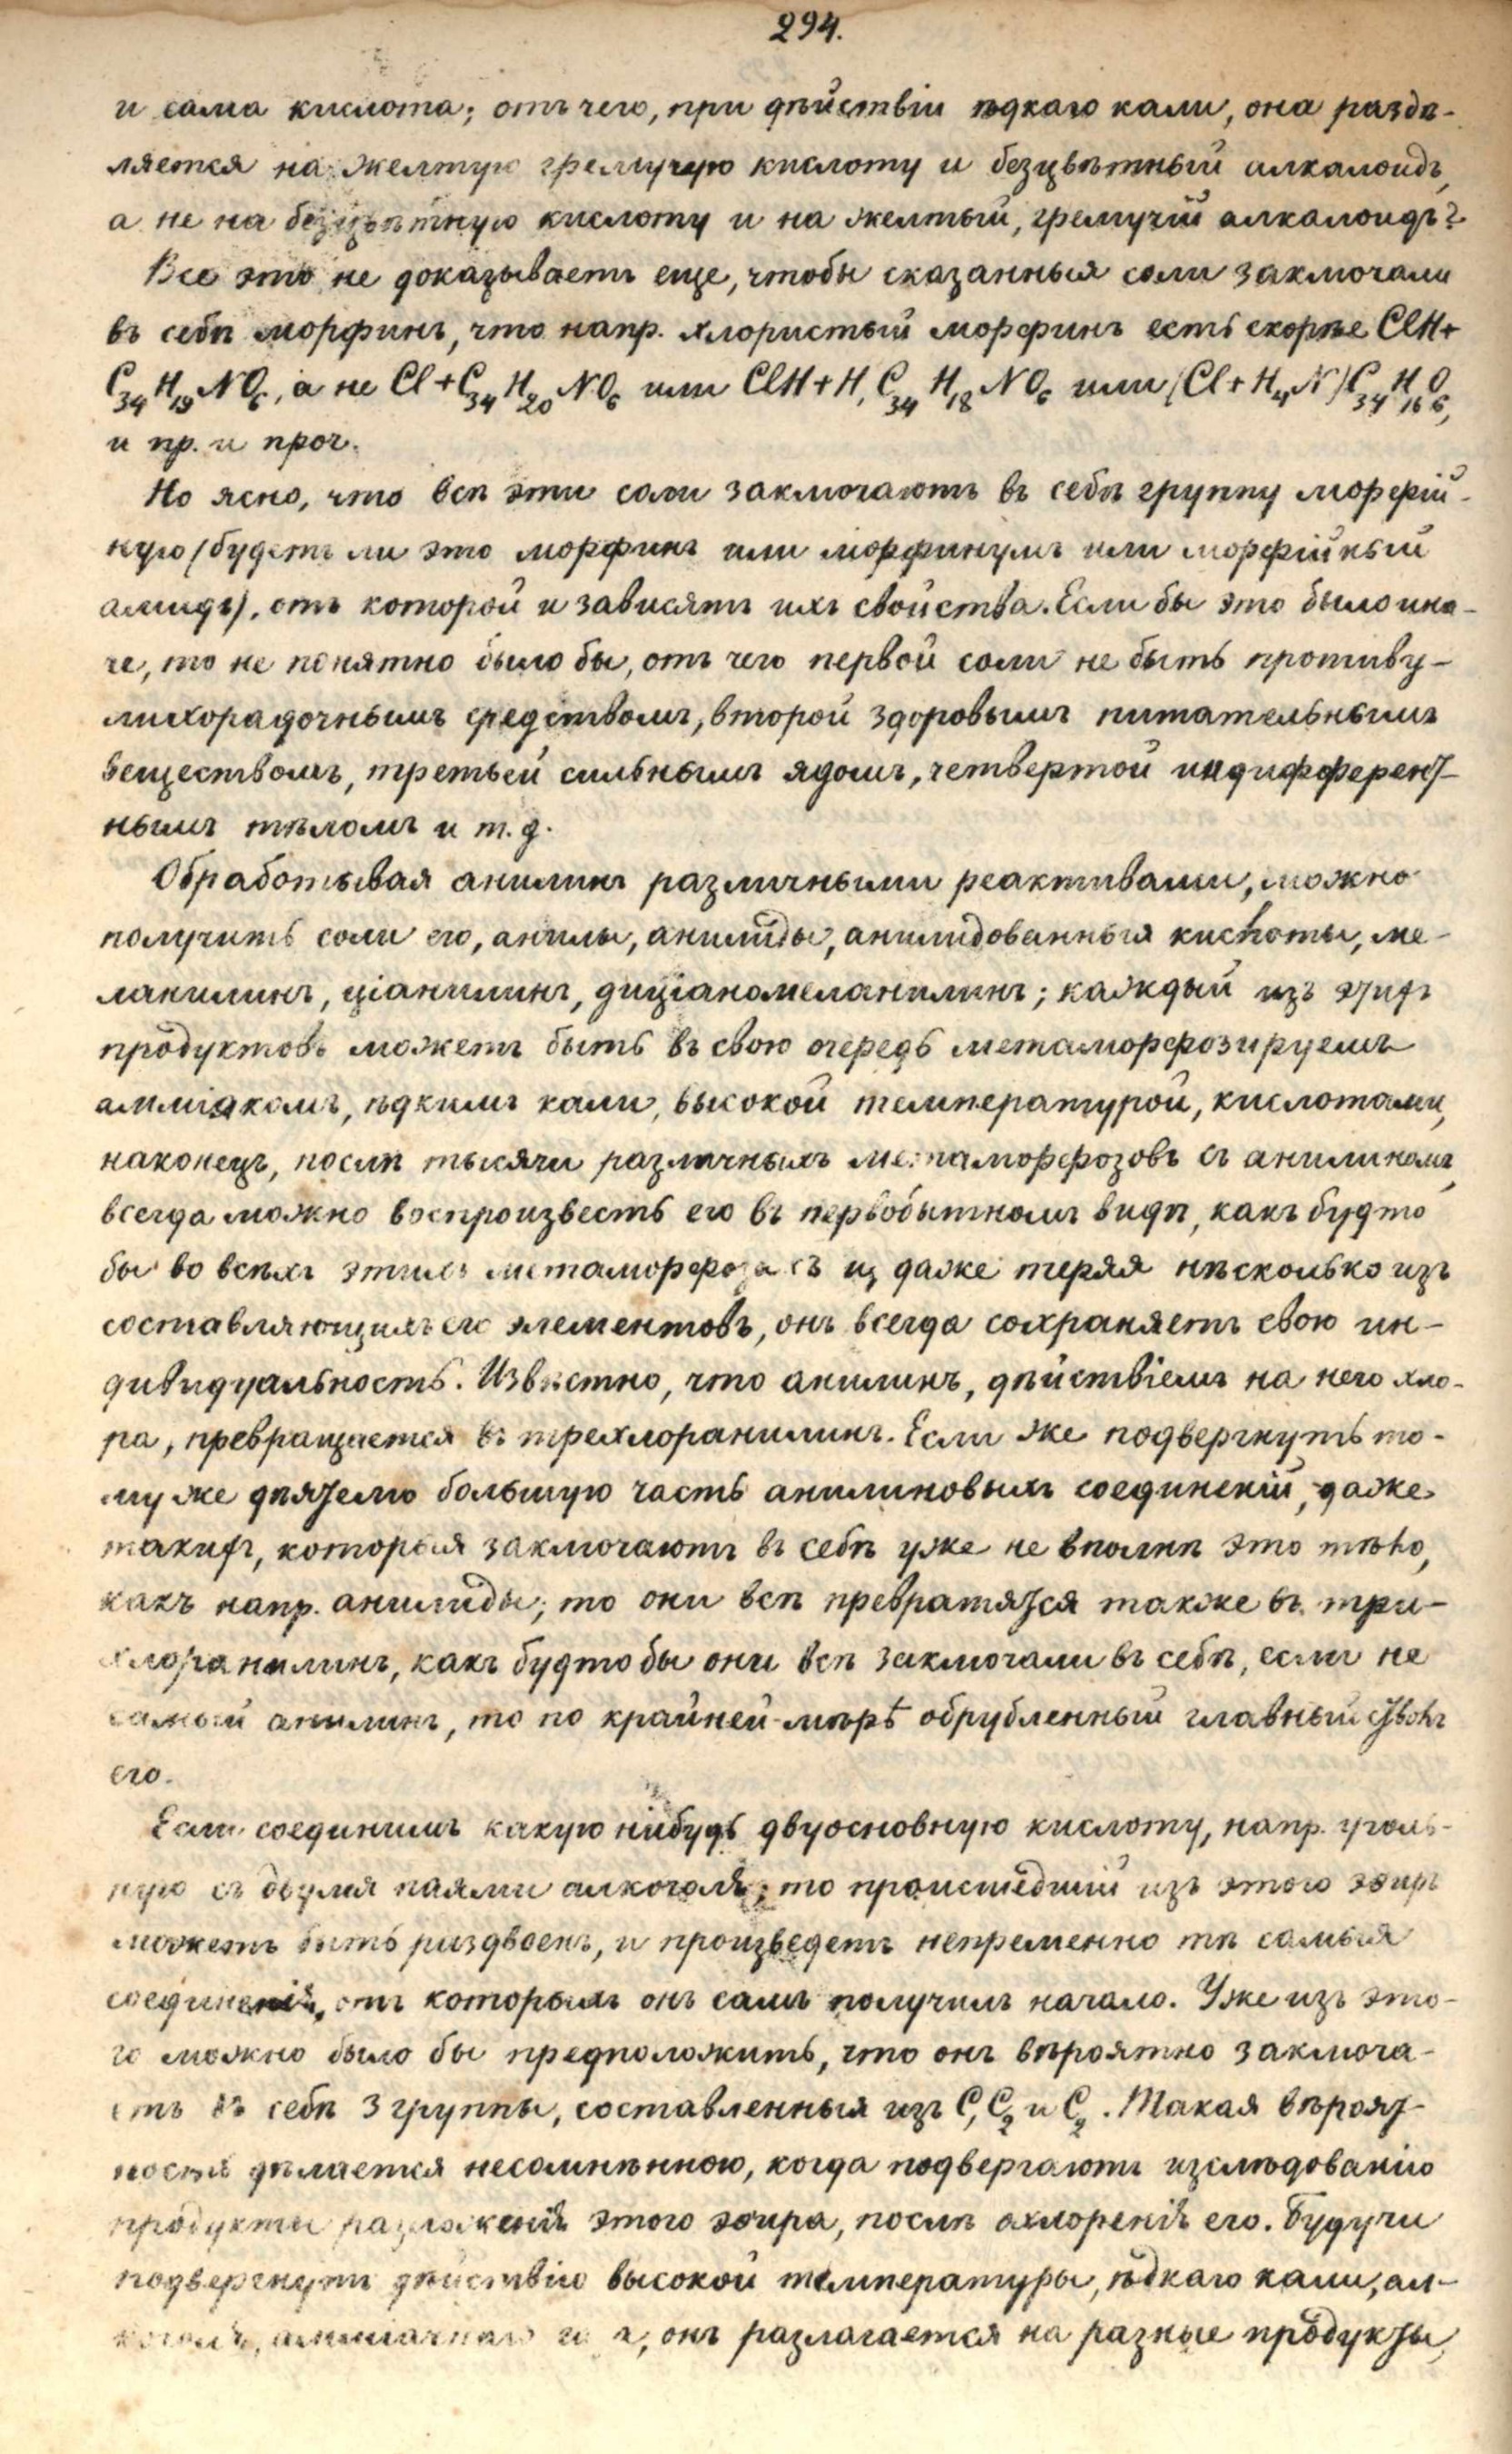 294.
и сама кислота; отъ чего, при дѣйствіи ѣдкаго кали, она раздѣ-
ляется на желтую гремучую кислоту и безцвѣтный алкалоидъ,
а не на безцвѣтную кислоту и на желтый, гремучій алкалоидъ?
Все это не доказываетъ еще, чтобы сказанныя соли заключали
въ себѣ морфинъ, что напр. хлористый морфинъ есть скорѣе ClH+
C₃₄H₁₉NO₆, а не Cl+C₃₄H₂₀NO₆ или ClH+H, C₃₄H₁₈NO₆ или (Cl+H₄N)C₃₄H₁₆O₆,
и пр. и проч.
Но ясно, что всѣ эти соли заключаютъ въ себѣ группу морфій-
ную (будетъ ли это морфинъ или морфинумъ или морфійный
амидъ), отъ которой и зависятъ ихъ свойства. Если бы это было ина-
че, то не понятно было бы, отъ чего первой соли не быть противу-
лихорадочнымъ средствомъ, второй здоровымъ питательнымъ
веществомъ, третьей сильнымъ ядомъ, четвертой индифферент-
нымъ тѣломъ и т.д.
Обработывая анилинъ различными реактивами, можно
получить соли его, анилы, анилиды, анилидованныя кислоты, ме-
ланилинъ, ціанилинъ, диціаномеланилинъ; каждый изъ этихъ
продуктовъ можетъ быть въ свою очередь метаморфозируемъ
амміакомъ, ѣдкимъ кали, высокой температурой, кислотами,
наконецъ, послѣ тысячи различныхъ метаморфозовъ съ анилиномъ,
всегда можно воспроизвесть его въ первобытномъ видѣ, какъ будто
бы во всѣхъ этихъ метаморфозахъ и, даже теряя нѣсколько изъ
составляющихъ его элементовъ, онъ всегда сохраняетъ свою ин-
дивидуальность. Извѣстно, что анилинъ, дѣйствіемъ на него хло-
ра, превращается въ трехлоранилинъ. Если же подвергнуть то-
му же дѣятелю большую часть анилиновыхъ соединеній, даже
такихъ, которыя заключаютъ въ себѣ уже не вполнѣ это тѣло,
какъ напр. анилиды; то они всѣ превратятся также въ три-
хлоранилинъ, какъ будто бы они всѣ заключали въ себѣ, если не
самый анилинъ, то по крайней-мѣрѣ обрубленный главный стволъ
его.
Если соединимъ какую нибудь двуосновную кислоту, напр. уголь-
ную съ двумя паями алкоголя; то происшедшій изъ этого эѳиръ
можетъ быть раздвоенъ, и произведетъ непременно тѣ самыя
соединенія, отъ которыхъ онъ самъ получилъ начало. Уже изъ это-
го можно было бы предположить, что онъ вѣроятно заключа-
етъ въ себѣ 3 группы, составленныя изъ C, C₂ и C₂. Такая вѣроят-
ность дѣлается несомнѣнною, когда подвергаютъ изслѣдованію
продукты разложенія этого эѳира, послѣ охлоренія его. Будучи
подвергнутъ дѣйствію высокой температуры, ѣдкаго кали, ал-
коголя, амміачнаго онъ разлагается на разные продукты,